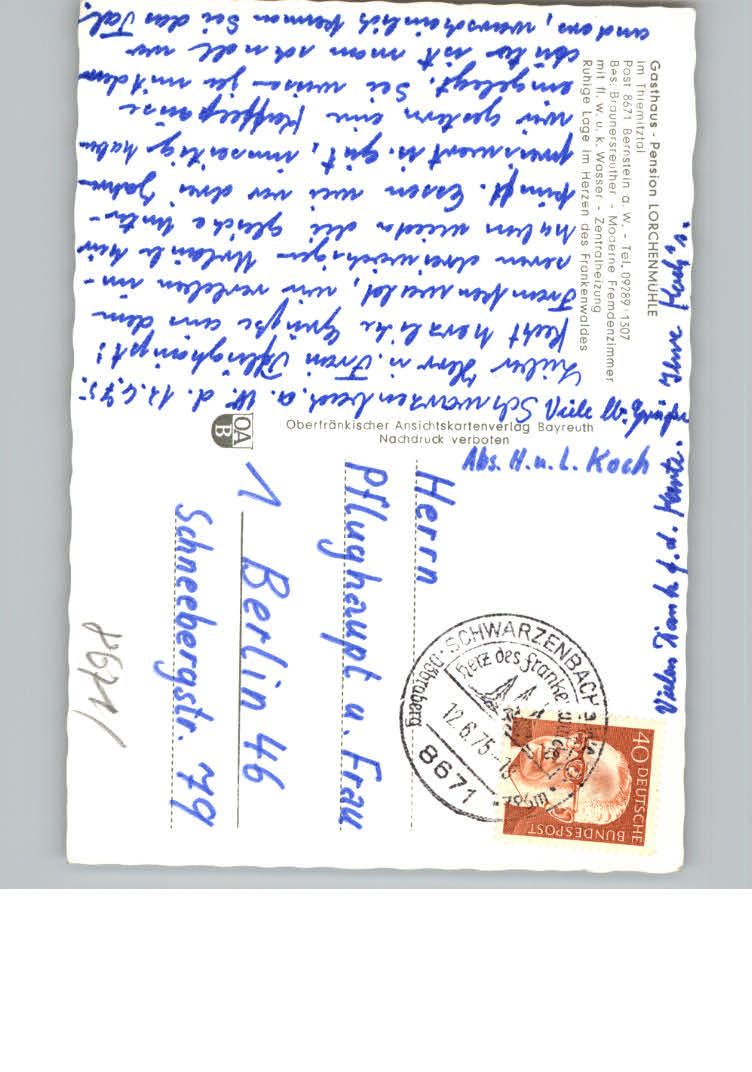 Gasthaus - Pension LORCHENMÜHLE
im Thiemitztal
Post 8671 Bernstein a. W. - Tel. 09289/1307
Bes. Braunersreuther - Moderne Fremdenzimmer
mit fl. w. u. k. Wasser - Zentralheizung
Ruhige Lage im Herzen des Frankenwaldes
Schwarzenbach a. W. d. 12.6.75.
Lieber Herr u. Frau Pflughaupt!
Recht herzliche Grüße aus dem
Frankenwald, wir verleben un-
seren dreiwöchigen Urlaub hier
haben wieder die gleiche Unter-
kunft. Essen wie vor drei Jahren
preiswert u. gut,
wir gestern eine Kaffeepause
eingelegt. Sie wissen ja mit dem
Auto ist man schnell wo
anders, warscheinlich kennen Sie das Tal.
Viele
Ihre Koch's.
Vielen Dank f. d. Karte.
Abs. H. u. L. Koch
Oberfränkischer Ansichtskartenverlag Bayreuth
Nachdruck verboten
OA
B
Herrn
Pflughaupt u. Frau
1 Berlin 46
Schneebergstr. 79
SCHWARZENBACH
Herz des Frankenwaldes
Döbraberg
12.6.75
8671
40 DEUTSCHE
BUNDESPOST
8671